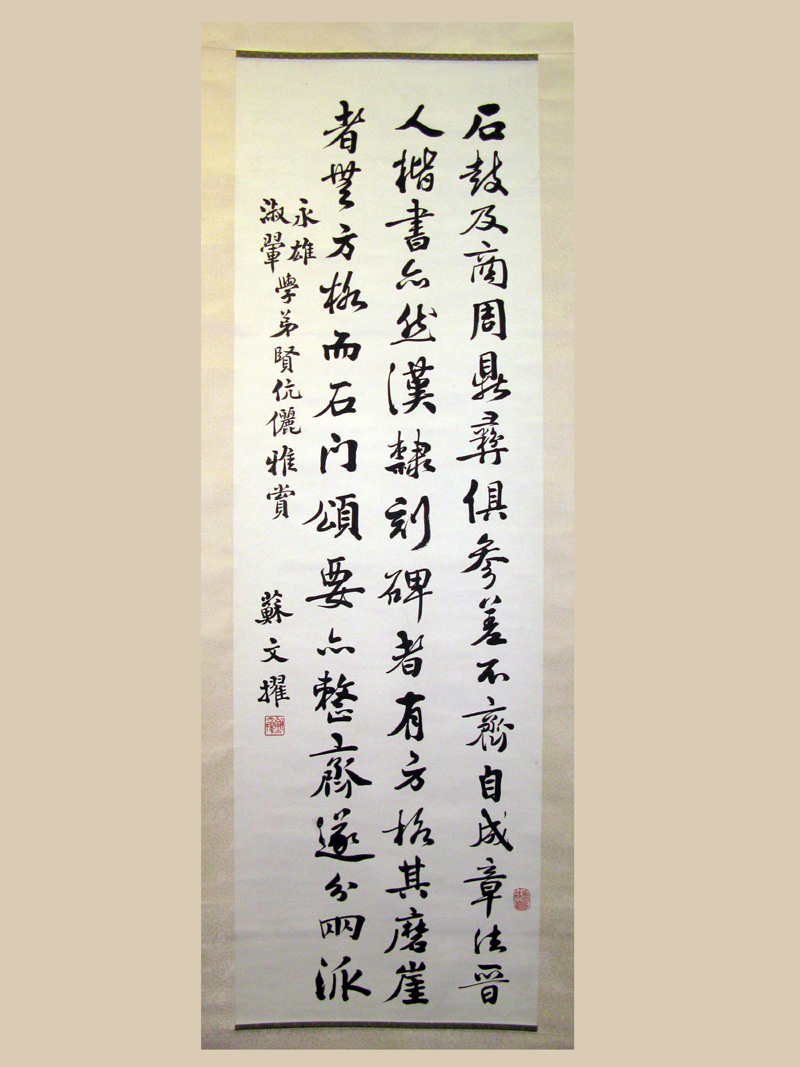 石鼓及商周鼎彝俱參差不齋自成章法晉
人楷書亦然漢隸刻碑者有方格其磨崖
者無方格而石门頌要亦整齋遂分兩派
永雄
淑翬
學弟賢伉儷雅賞
蘇文擢